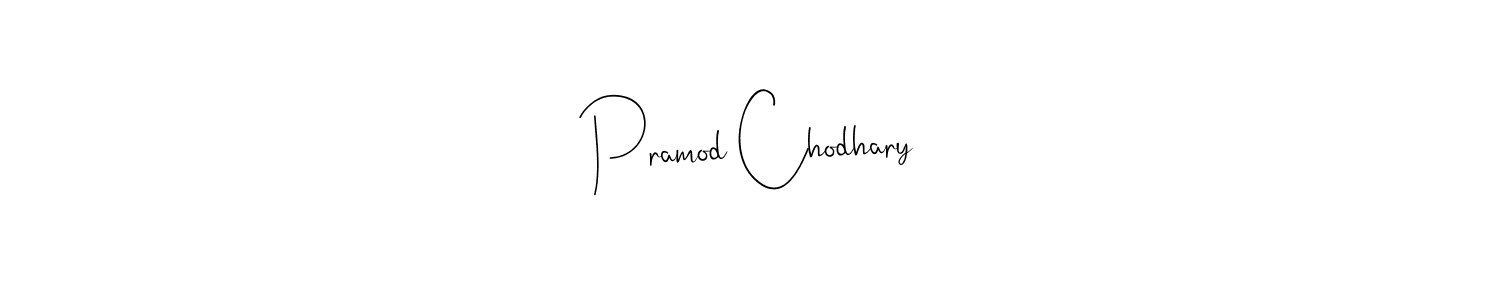 Pramod Chodhary